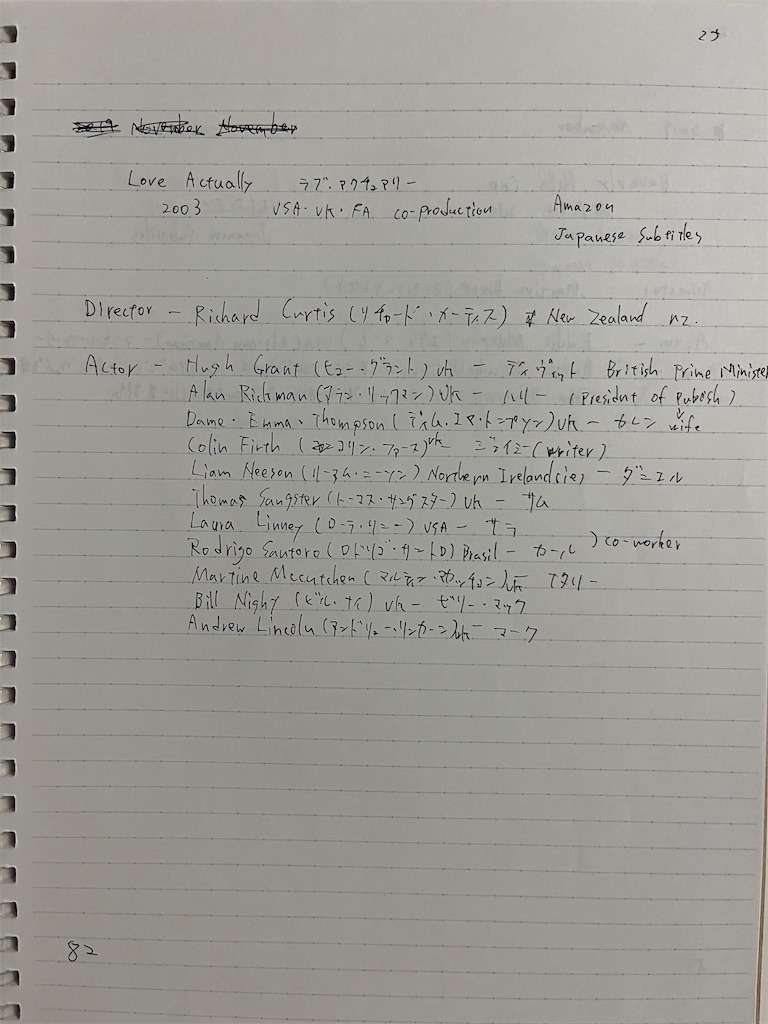 25
2019 November November
Love Actually ラブ・アクチュアリー
2003 USA・UK・FA co-production Amazon
Japanese Subtitles
Director – Richard Curtis (リチャード・カーティス) New Zealand nz.
Actor – Hugh Grant (ヒュー・グラント) UK – ディヴィット British Prime Minister
Alan Rickman (アラン・リックマン) UK – ハリー (President of pubish)
Dame・Emma・Thompson (ディム・エマ・トンプソン) UK – カレン wife
Colin Firth (コリン・ファース) UK – ジェイミー (writer)
Liam Neeson (リーアム・ニーソン) Northern Ireland – ダニエル
Thomas Sangster (トーマス・サングスター) UK – サム
Laura Linney (ローラ・リニー) USA – サラ
Rodrigo Santoro (ロドリゴ・サントロ) Brasil – カール ) co-worker
Martine Mccutchen (マルティン・マカッチョン) UK – ナタリー
Bill Nighy (ビル・ナイ) UK – ビリー・マック
Andrew Lincoln (アンドリュー・リンカーン) UK – マーク
82